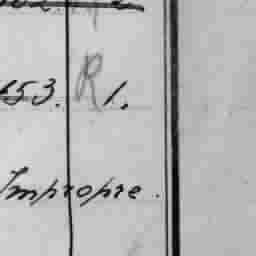 653. R 1.
Impropre.